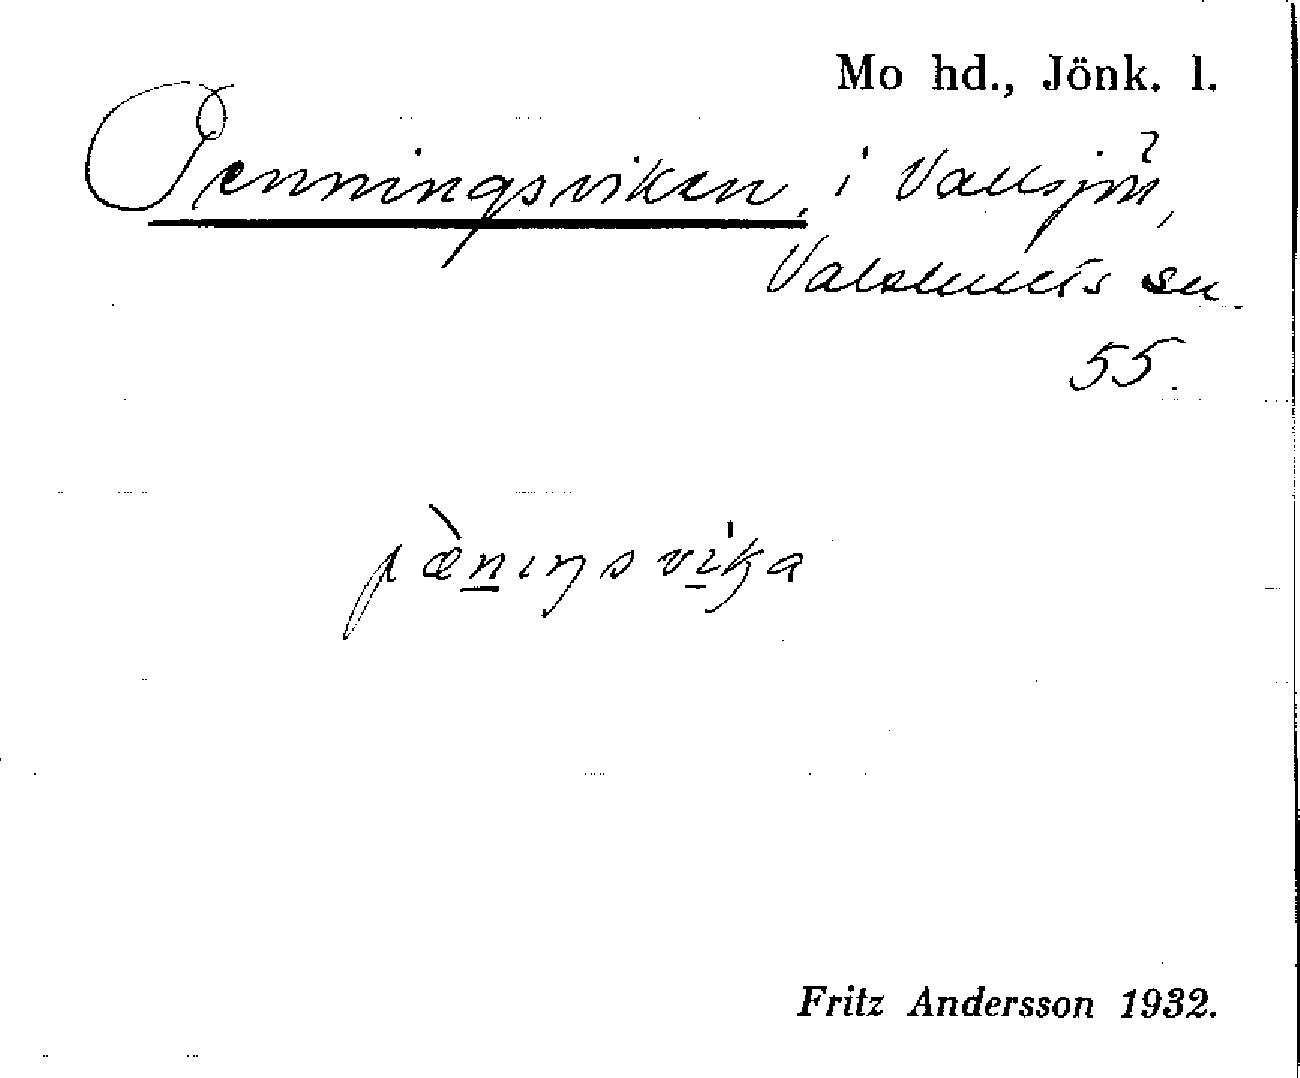 Mo hd., Jönk. l.
Penningsviken, i Vallsjön,
Valdshults sn.
55.
pæ̀n̲ıŋsvi̲ka
Fritz Andersson 1932.